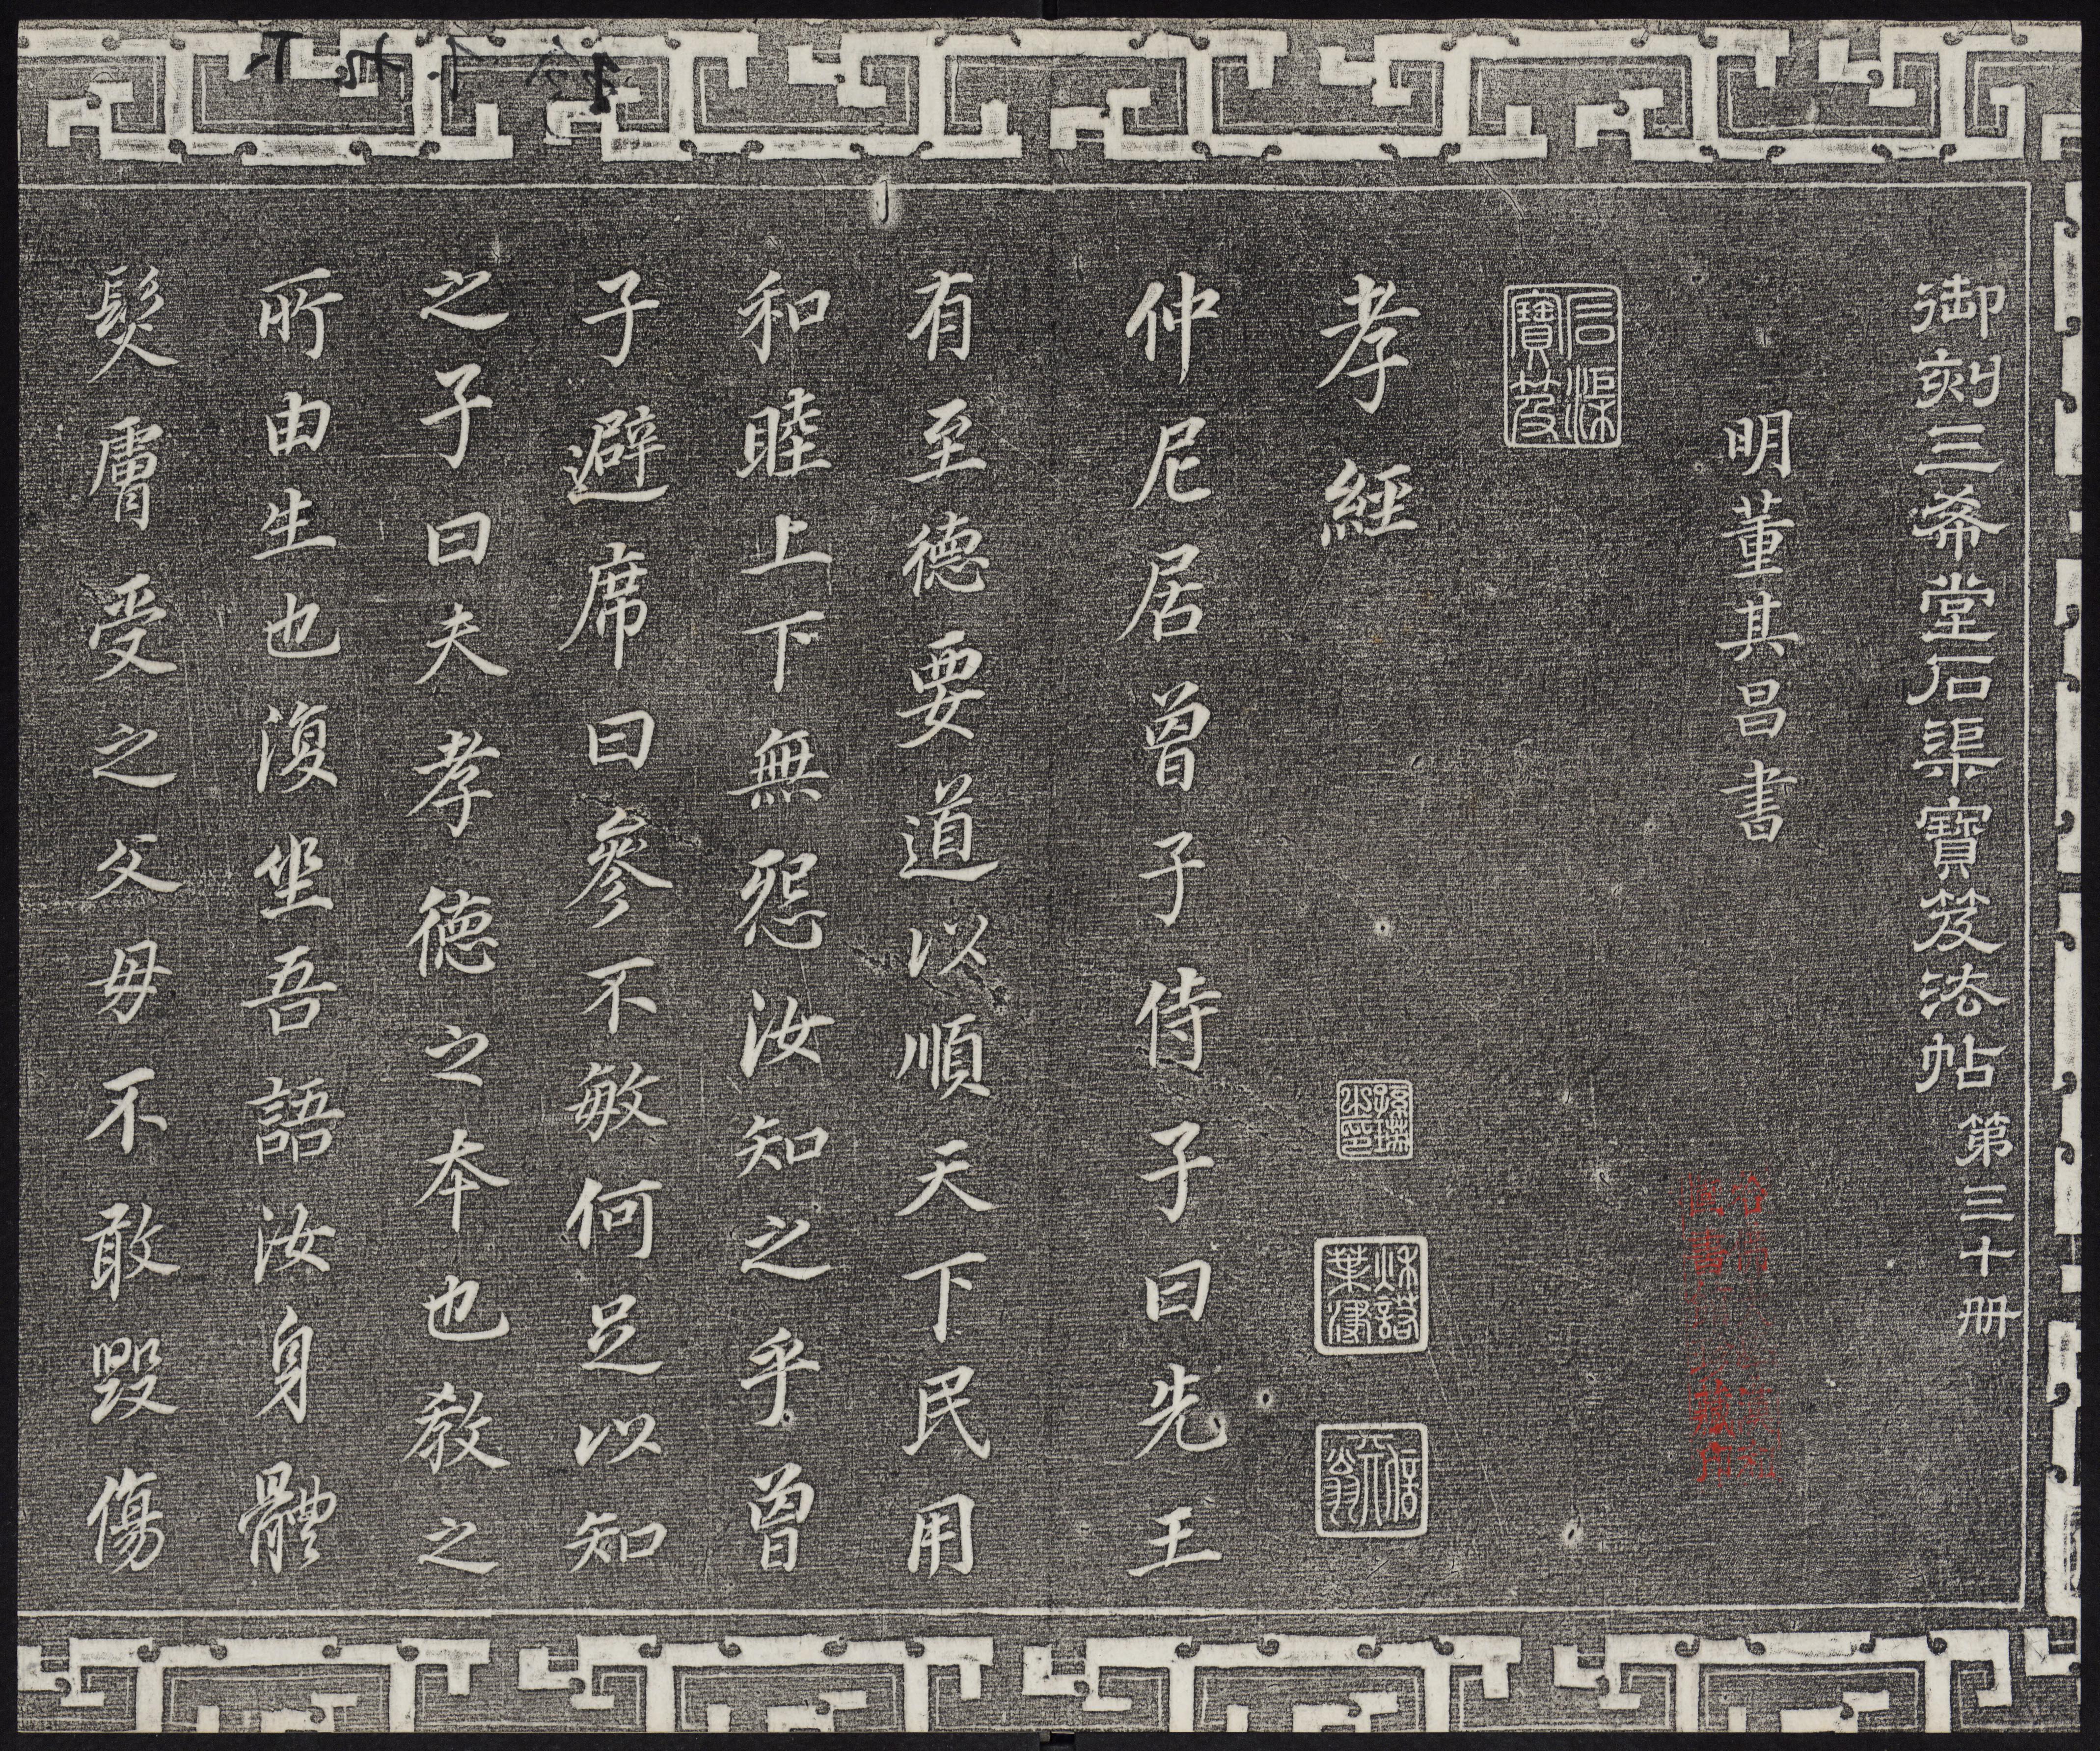 御刻三希堂石渠寶笈法帖第三十册
明董其昌書
石渠寶笈
孝經
仲尼居曾子侍子曰先王
有至德要道以順天下民用
和睦上下無怨汝知之乎曾
子避席曰參不敏何足以知
之子曰夫孝德之本也教之
所由生也復坐吾語汝身體
髮膚受之父母不敢毀傷